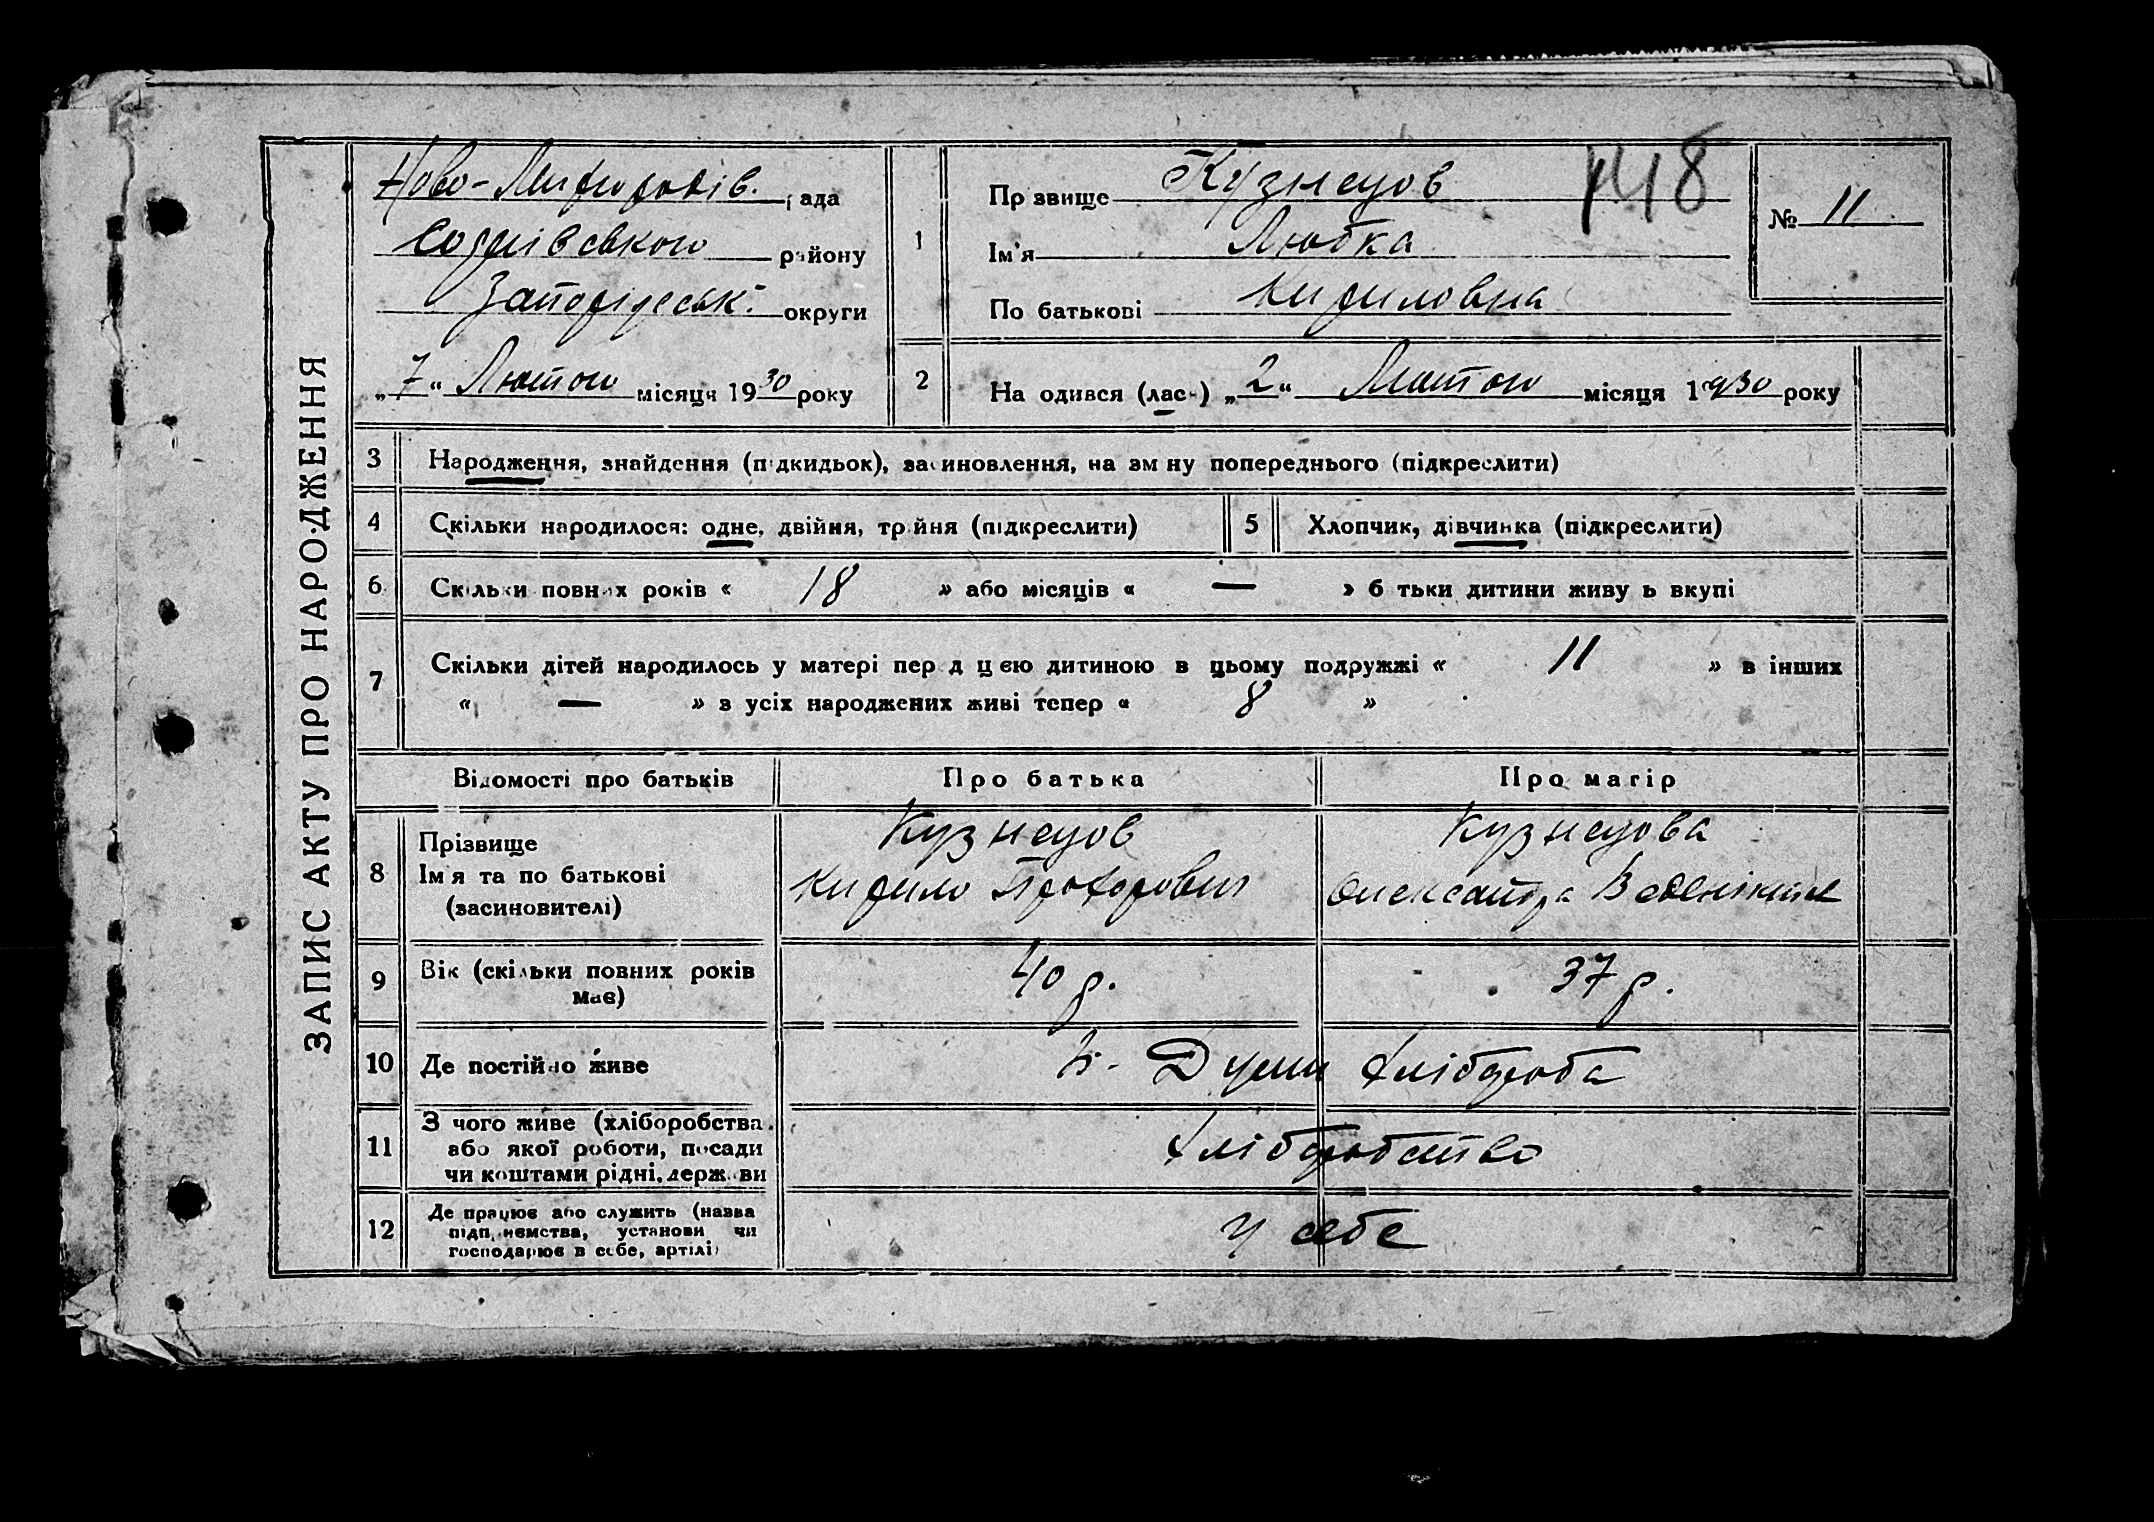 ЗАПИС АКТУ ПРО НАРОДЖЕННЯ
Ново- рада
району
округи
„7“ Лютого місяця 1930 року
1
Прізвище Кузнецов
Ім'я Любка
По батькові Кириловна
№ 11
2 На одився (лась) „2“ Лютого місяця 1930 року
3 Народження, знайдення (підкидьок), засиновлення, на зміну попереднього (підкреслити)
4 Скільки народилося: одне, двійня, трійня (підкреслити)
5 Хлопчик, дівчинка (підкреслити)
6 Скільки повних років « 18 » або місяців « — » б тьки дитини живу ь вкупі
7 Скільки дітей народилось у матері пер д цією дитиною в цьому подружжі « 11 » в інших
« — » з усіх народжених живі тепер « 8 »
Відомості про батьків Про батька Про матір
8 Прізвище
Ім'я та по батькові
(засиновителі)
Кузнецов
Кирило Прохорович
Кузнецова
Олександра
9 Вік (скільки повних років
має)
40 р. 37 р.
10 Де постійно живе
хлібороба
11 З чого живе (хліборобства,
або якої роботи, посади
чи коштами рідні, держави
хліборобство
12 Де працює або служить (назва
підприємства, установи чи
господарює в себе, артілі)
у себе